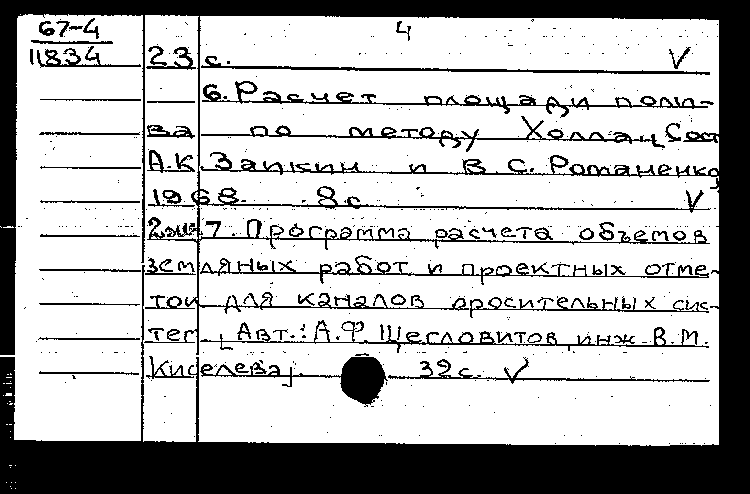 67-4 4
11834 23 с. V
6. Расчет площади поли-
ва по методу Сост
А.К. Заикин и В.С. Романенко,
1968. 8 с V
7. Программа расчета объемов
земляных работ и проектных отме-
ток для каналов оросительных сис-
тем. [Авт.: А.Ф. Щегловитов, инж. В.М.
Киселева]. 39 с. V